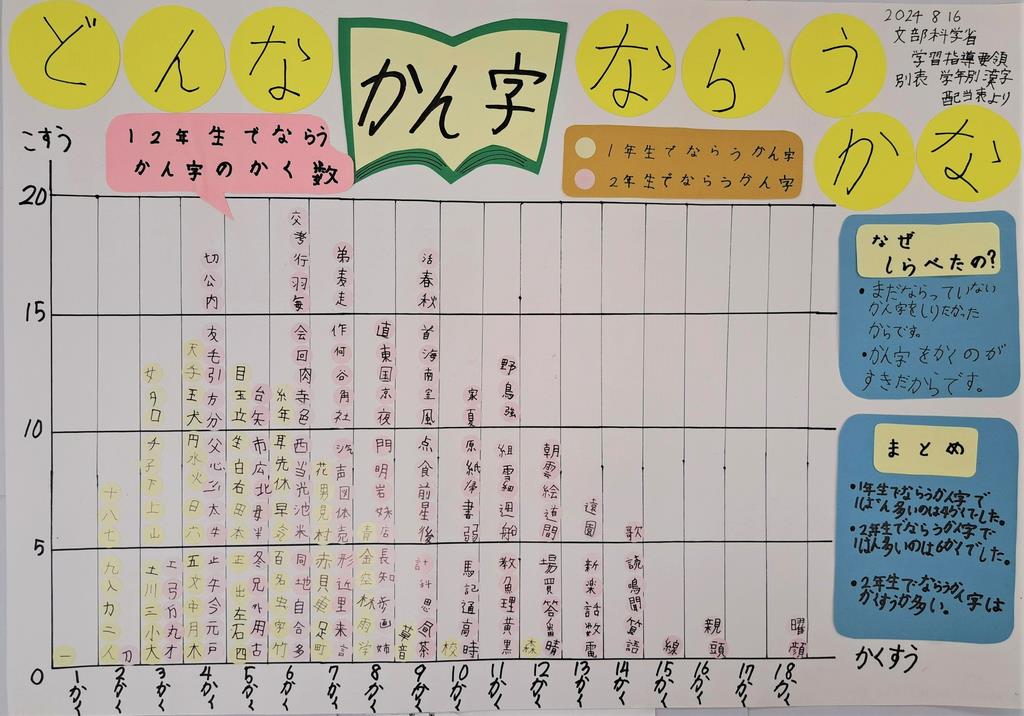 どんな
かん字
ならう
かな
2024 8 16
文部科学省
学習指導要領
別表 学年別漢字
配当表より
12年生でならう
かん字のかく数
1年生でならうかん字
2年生でならうかん字
こすう
20
15
10
5
0
なぜ
しらべたの?
・まだならっていない
かん字をしりたかった
からです。
・かん字をかくのが
すきだからです。
まとめ
・1年生でならうかん字で
1ばん多いのは4かくでした。
・2年生でならうかん字で
1ばん多いのは6かくでした。
・2年生でならうかん字は
かくすうが多い。
一
十八七九入力二人
刀
女夕口千子下上山土川三小大
工弓万丸才
天手王犬円水火日六五文中月木
切公内友毛引方分父心少太牛止午今元戸
目玉立生白右田本正出左石四
台矢市広北母半冬兄外用古
糸年耳先休早百名虫字竹
交考行羽毎会回肉寺色西当光池米同地自合多
花男見村赤貝車足町
弟麦走作何谷角社汽声図体売形近里来言
青金空林雨学
直東国京夜門明岩妹店長知歩画姉
草音
活春秋首海南室風点食前星後計科思茶
校
家夏原紙帰書弱馬記通高時
野鳥強組雪細週船教魚理黄黒
森
朝雲絵道間場買答番晴
遠園新楽話数電
歌読鳴聞算語
線
親頭
曜顔
1かく
2かく
3かく
4かく
5かく
6かく
7かく
8かく
9かく
10かく
11かく
12かく
13かく
14かく
15かく
16かく
17かく
18かく
かくすう